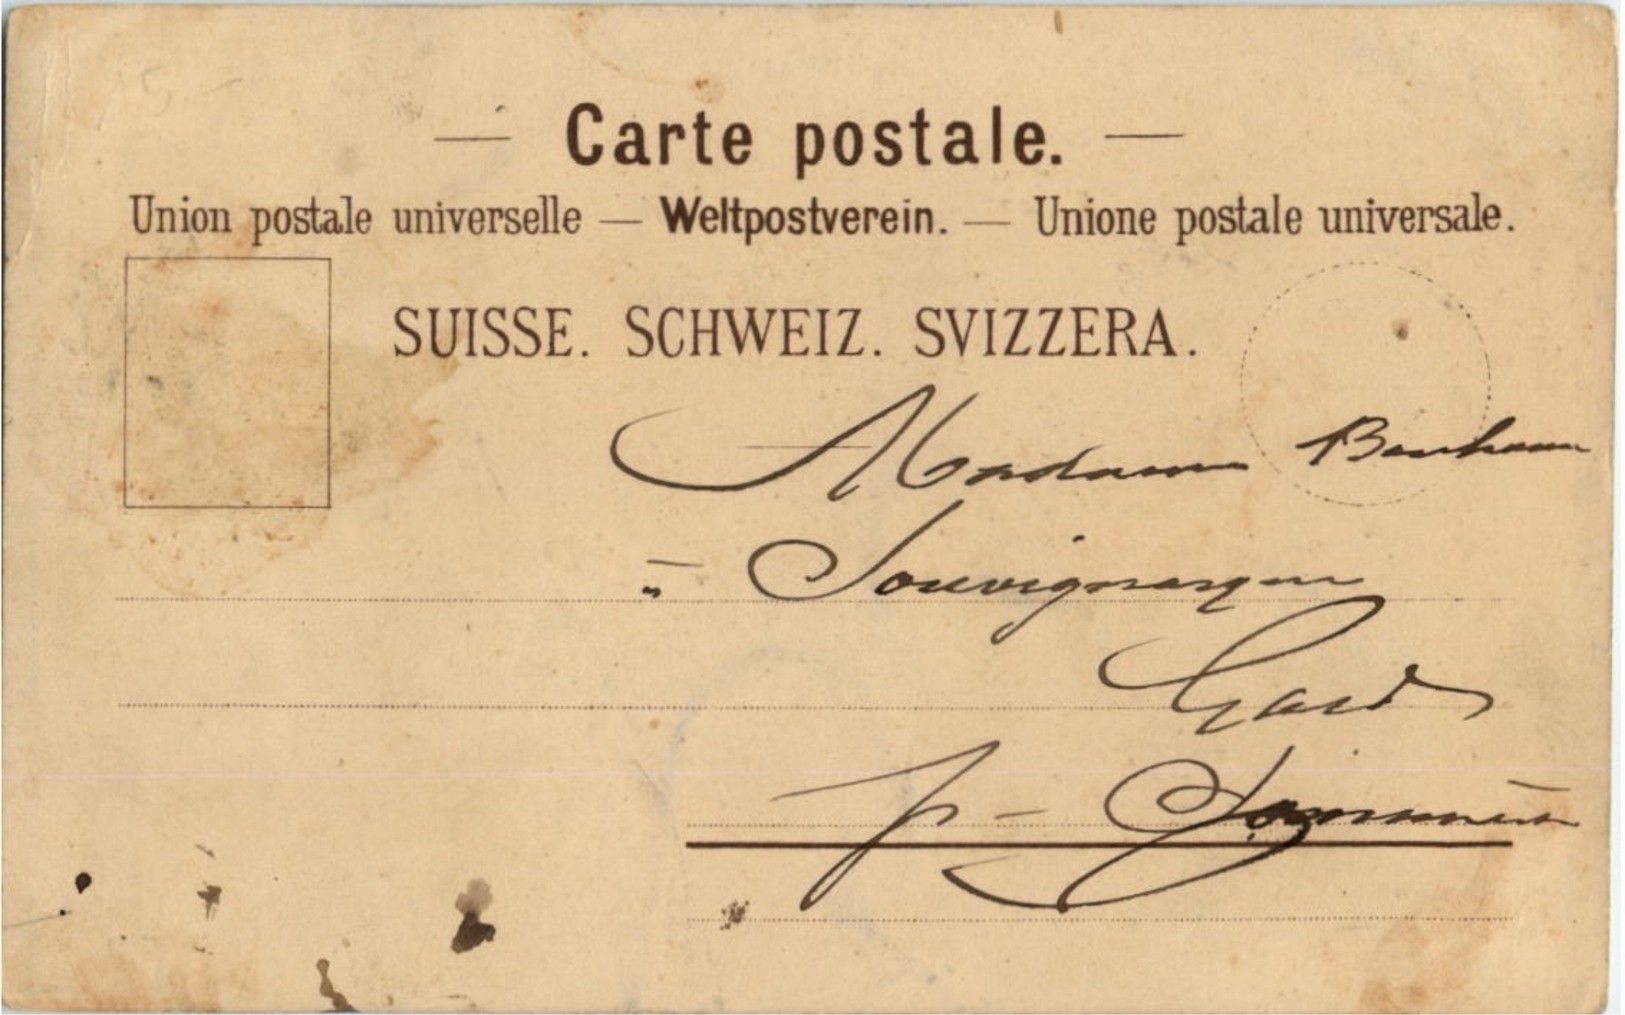 — Carte postale. —
Union postale universelle — Weltpostverein. — Unione postale universale.
SUISSE. SCHWEIZ. SVIZZERA.
Madame
à Souvignargues
Gard
p- Sommières